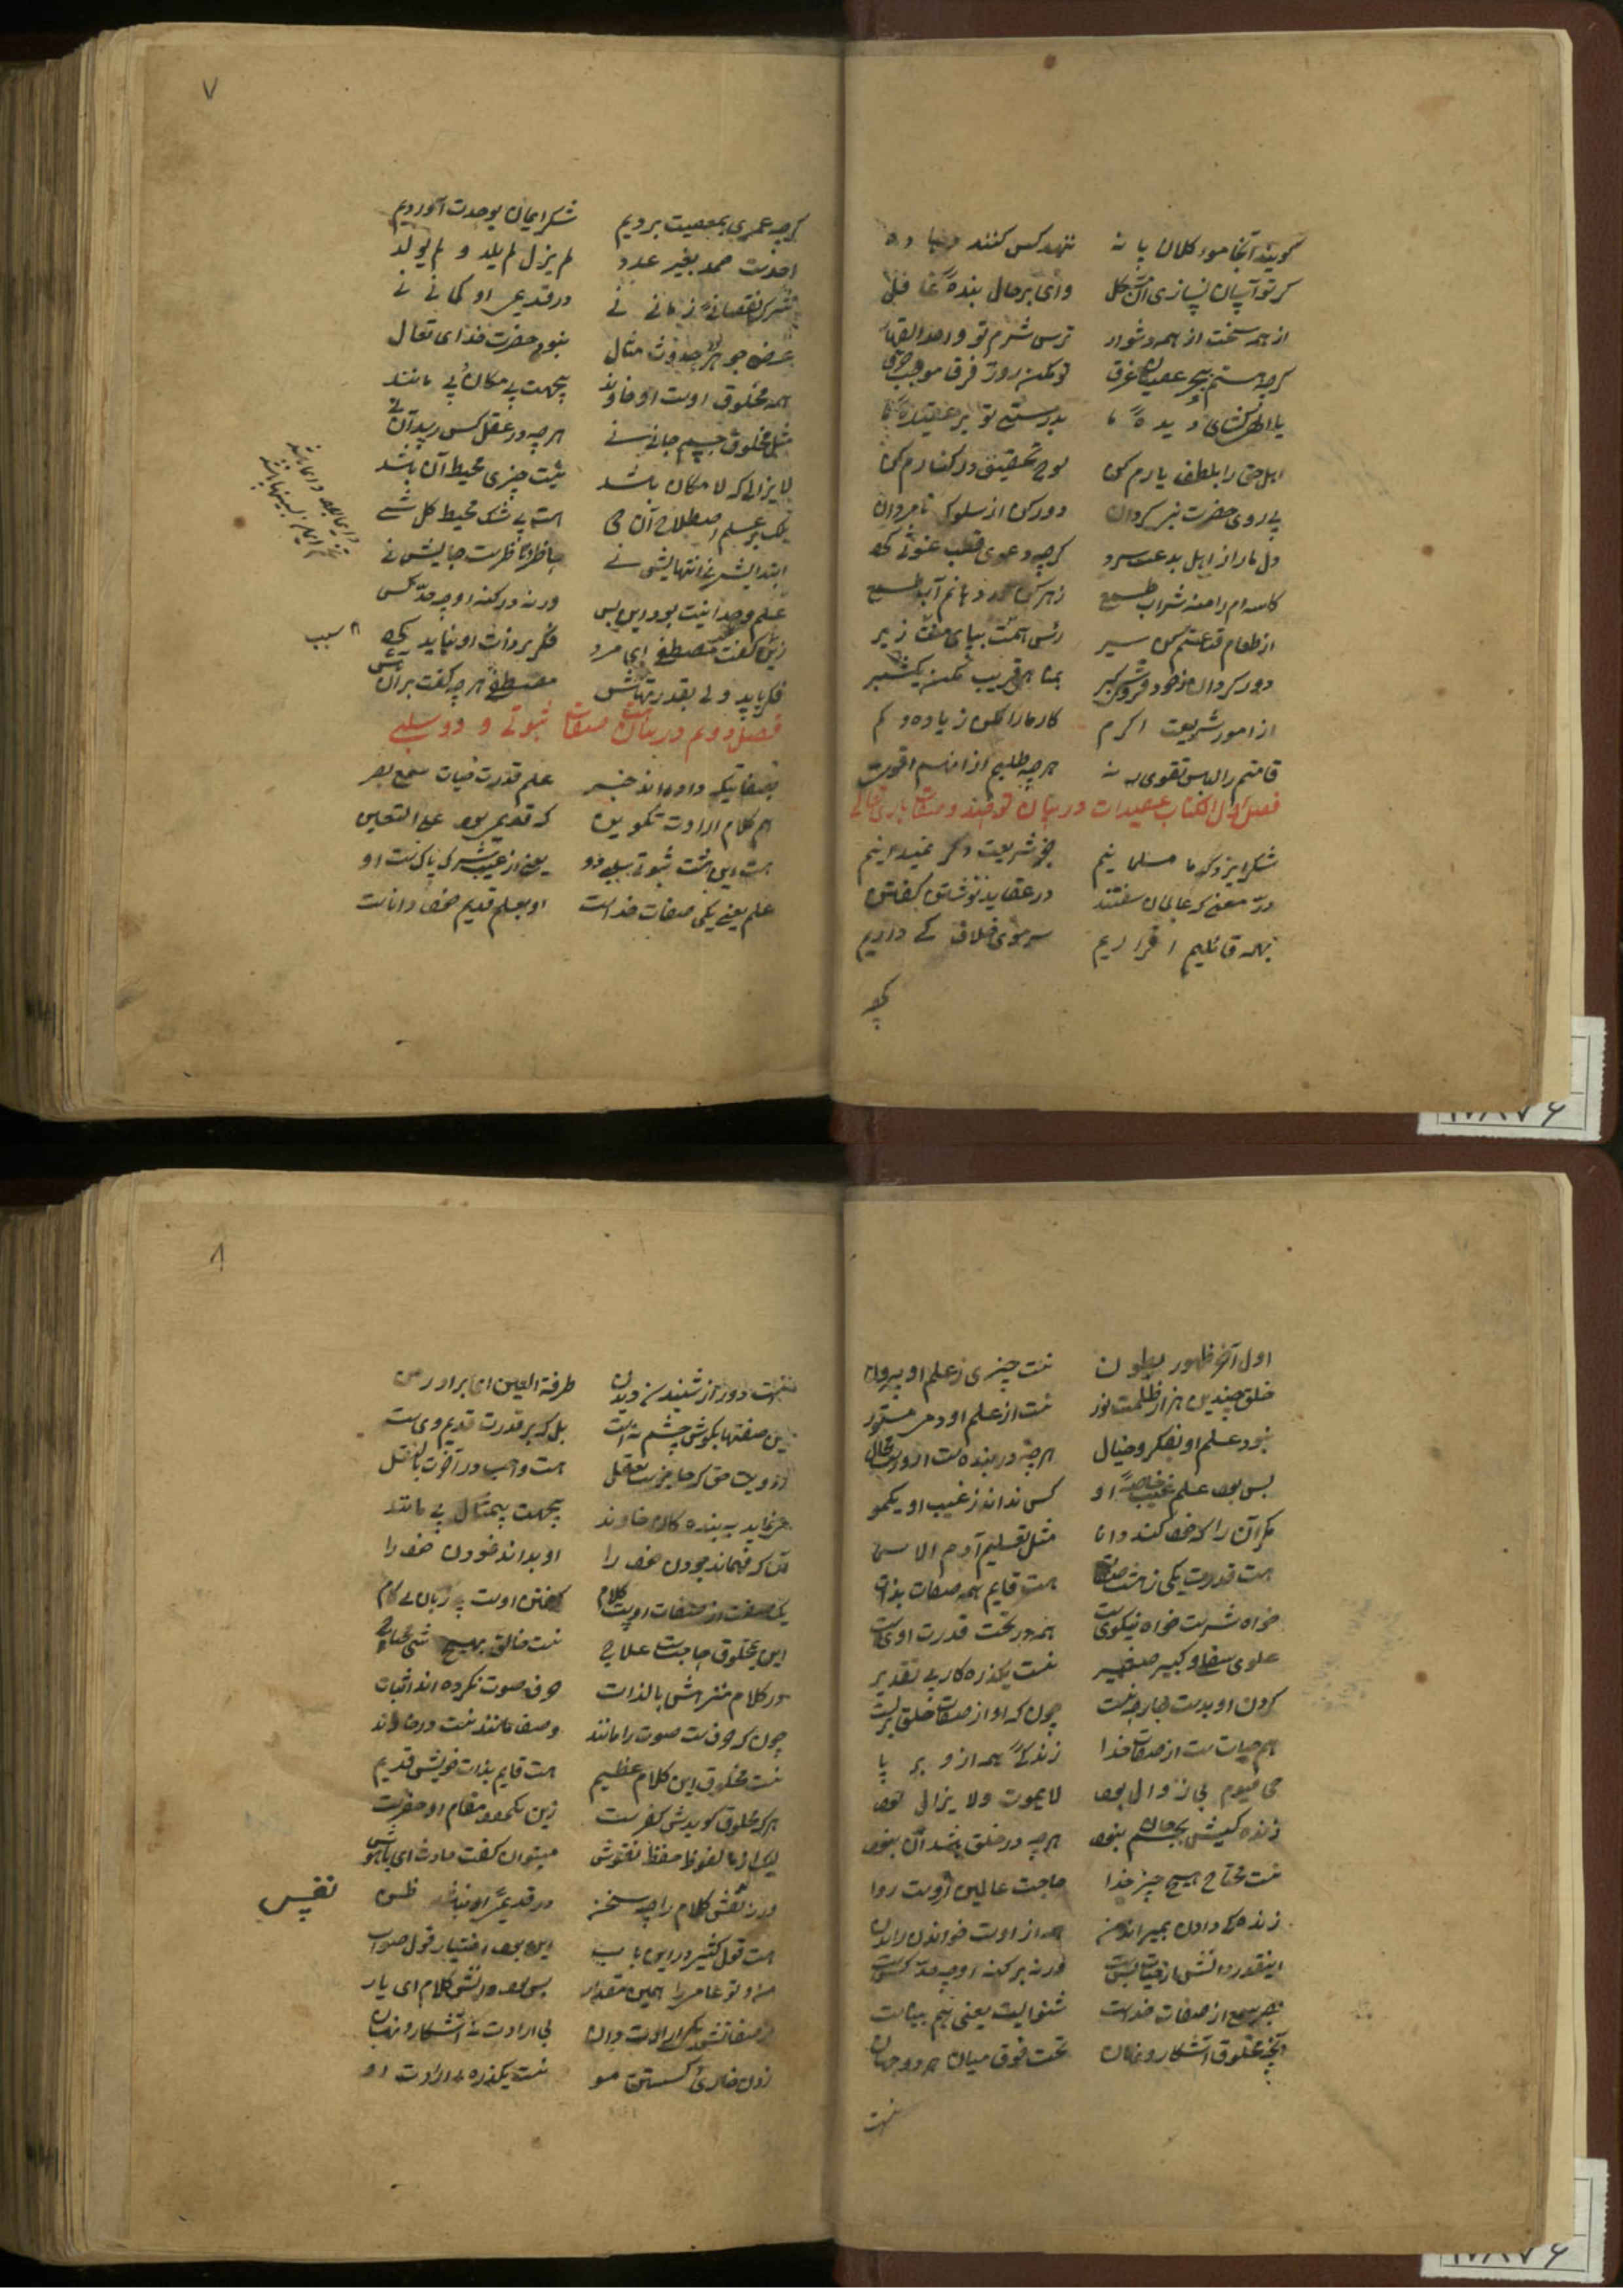 گویند آنجا مور کلان یا نه تنهد کس کنند
گر تو آسان نسازی آن مشکل وای بر حال بنده غافل
از همه سخت از همه دشوار ترس شرم تو واحد القهار
گرچه هستم ببحر عصیان غرق تو مکن روز فرق
یا الهی کشای دیده ما بدرستی تو بر عقیده ما
اهل حق را بلطف یارم کن لوح تحقیق در کنارم کن
پی روی حضرت نبی گردان دور کن از سلوک نامردان
دل ما را از اهل بدعت سرد گرچه دعوی قطب غوثی کرد
کاسه ام را مده شراب طمع زهر کن در دهانم آب طمع
از طعام قناعتم کن سیر
دور گردان ز خود فروش کبیر بما هم قریب مکن یکشبر
از امور شریعت اکرم کار ما را مکن زیاده و کم
قامتم را لباس تقوی ده هرچه طلبم از آنهم اقوی ده
فصل اول الکتاب عقیدات در بیان توحید و صفات باری تعالی
شکر ایزد که ما مسلمانیم جز شریعت دگر نمیدانیم
در معنی که عالمان سفتند در عقاید نوشتن گفتن
بهمه قائلیم اقراریم سر موی خلاف کی داریم
گرچه
۷
گرچه عمری بمعصیت بردیم شکر ایمان بوحدت آوردیم
احدست صمد بغیر عدد لم یزل لم یلد و لم یولد
شرک نقصانی زمانی نی در قدیمی او گمانی نی
عرض جوهر حدوث مثال نبود حضرت خدای تعال
همه مخلوق اوست او خاوند بیجهت بی مکان بی مانند
مثل مخلوق جسم جانی نی هرچه در عقل کس رسد آن نی
لا یزالی که لا مکان باشد نیست چیزی محیط آن باشد
لیک بر علم اصطلاح آن حی هست بی شک محیط کل شی
ابتدایش نی انتهایش نی حاضر ناظرست جایش نی
علم وحدانیت بود این بس ورنه در کنه او چه حد کس
زین گفت مصطفی ای مرد فکر بر ذات او نباید کرد
فکر باید ولی بقدرتهاش مصطفی هرچه گفت بر آن باش
فصل دوم در بیان هشت صفات ثبوتی و دو سلبی
بصفاتیکه داده اند خبر علم قدرت حیات سمع بصر
هم کلام ارادت تکوین که قدیمی بود علی التعیین
هست این هشت ثبوتی سلبی دو یعنی از عیب شرک پاکست او
علم یعنی یکی صفات خداست او بعلم قدیم خود داناست
اول آخر ظهور بطون نیست چیزی ز علم او بیرون
خلق چندین هزار ظلمت نور نیست از علم او دمی مستور
نبود علم او بفکر و خیال هرچه در بنده است ازوست محال
بس بود علم غیب خاصه او کس نداند ز غیب او یکمو
مگر آن را که خود کند دانا مثل تعلیم آدم الاسما
هست قدرت یکی ز هشت صفات هست قایم همه صفات بذات
خواه شریست خواه نیکویست همه در تحت قدرت اویست
علوی سفلی و کبیر صغیر نیست یکذره کار بی تقدیر
کردن او بدست جارحه نیست چون که او از صفات خلق بریست
هم حیات ست از صفات خدا زندگی همه ازو بر پا
حی قیوم بی زوال بود لا یموت ولا یزال بود
زنده گیش بجسم جان نبود هرچه در خلق باشد آن نبود
نیست محتاج هیچ چیز خدا حاجت عالمین ازوست روا
زنده گی دادن بمیراندن همه از اوست خواندن راندن
اینقدر دانش از حیات بست ورنه بر کنه او چه حد کسست
بصر سمع از صفات خداست شنوائیست یعنی هم بیناست
آنچه مخلوق آشکار و نهان تحت فوق میان هر دو جهان
نیست
۸
نیست دور از شنیدن و دیدن طرفة العین ای برادر من
این صفتها بگوش چشم نه است بل که بر قدرت قدیم وی ست
رؤیت حق که جایز ست بعقل هست واجب در آخرت با نقل
می نماید به بنده گان خاوند بیجهت بیمثال بی مانند
آن که فهماند بودن خود را او بداند نمودن خود را
یک صفت از صفات اوست کلام گفتن اوست بی زبان بی کام
این بمخلوق حاجت ست علاج نیست خالق بهیچ شی محتاج
در کلام منزهش بالذات حرف صوت نکرده اند اثبات
چون که حرف ست صوت را مانند وصف مانند نیست در خاوند
نیست مخلوق این کلام عظیم هست قایم بذات خویش قدیم
هرکه مخلوق گویدش کفر ست زین نکته مقام او حفر ست
لیک از ما لفوظ حفظ نقوش میتوان گفت حادث ای باهوش
ورنه نفس کلام را چه سخن در قدیمی او نباشد ظن
هست قول کثیر در این باب این بود اختیار قول صواب
من و تو عامی را همین مقدار بس بود دانش کلام ای یار
از صفاتش یکی ارادت دان بی ارادت نه آشکار و نهان
زدن خاری گسستن مو نیست یکذره بی ارادت او
نفس